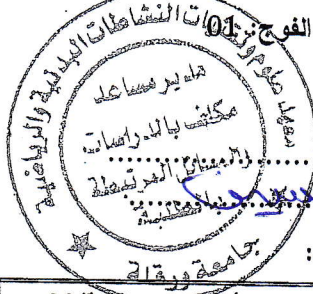 الفوج: 01
معهد علوم وتقنيات النشاطات البدنية والرياضية
مدير مساعد
مكلف بالدراسات
والمسائل المرتبطة
بالطلبة
جامعة ورقلة
: